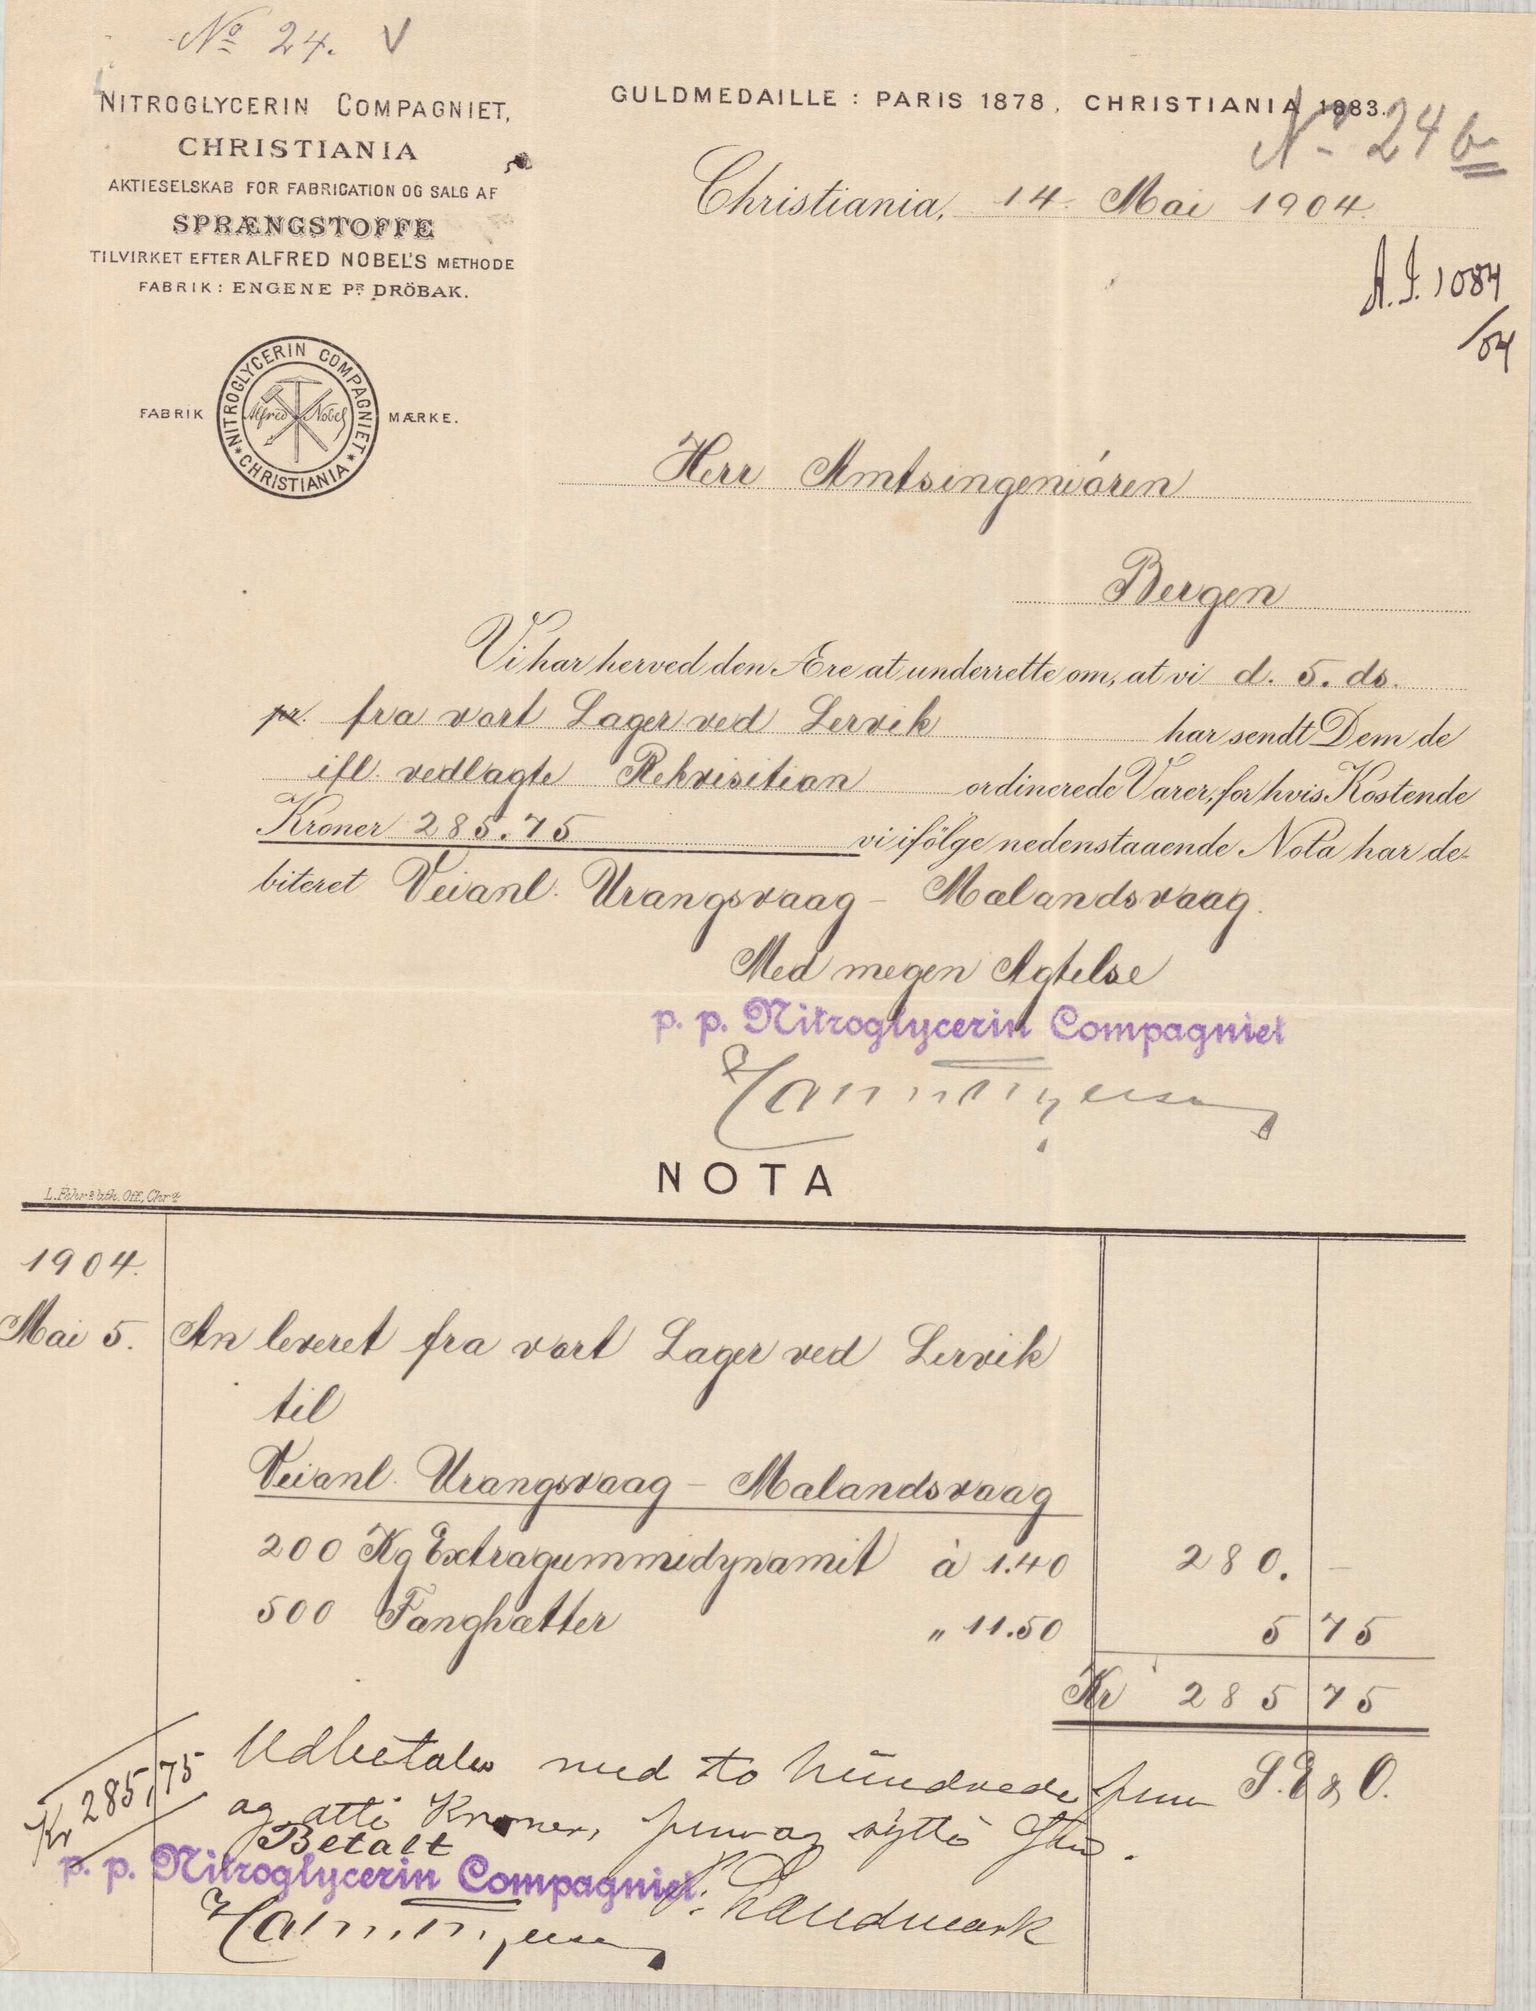 No 24. V
NITROGLYCERIN COMPAGNIET,
CHRISTIANIA
AKTIESELSKAB FOR FABRICATION OG SALG AF
SPRÆNGSTOFFE
TILVIRKET EFTER ALFRED NOBEL'S METHODE
FABRIK: ENGENE PR DRÖBAK.
FABRIK MÆRKE.
NITROGLYCERIN COMPAGNIET * CHRISTIANIA *
Alfred Nobel
GULDMEDAILLE: PARIS 1878, CHRISTIANIA 1883.
No 24 b
Christiania, 14. Mai 1904.
A.I. 1084
/04
Herr Amtsingeniören
Bergen
Vi har herved den Ære at underrette om, at vi d. 5. ds.
pr. fra vort Lager ved Lervik har sendt Dem de
ifl. vedlagte Rekvisition ordinerede Varer, for hvis Kostende
Kroner 285.75 vi ifölge nedenstaaende Nota har de-
biteret Veianl. Urangsvaag - Malandsvaag.
Med megen Agtelse
p. p. Nitroglycerin Compagniet
NOTA
L. Fehr & lith. Off., Chra
1904.
Mai 5. An leveret fra vort Lager ved Lervik
til
Veianl. Urangsvaag - Malandsvaag
200 Kg Extragummidynamit à 1.40 280. -
500 Fænghætter " 11.50 5 75
Kr 285 75
S. E & O.
Kr 285,75
Udbetales med to hundrede fem
og otti Kroner, fem og sytti Øre.
Betalt
p. p. Nitroglycerin Compagniet
Landmark